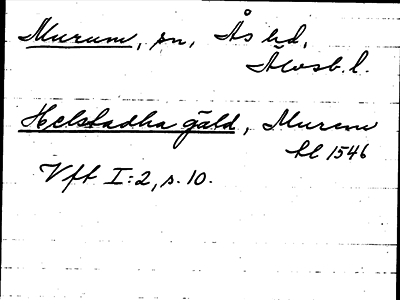 Murum, sn, Ås hd,
Älvsb. l.
Helstadha gäld, Murum
tl 1546
Vft I:2, s. 10.